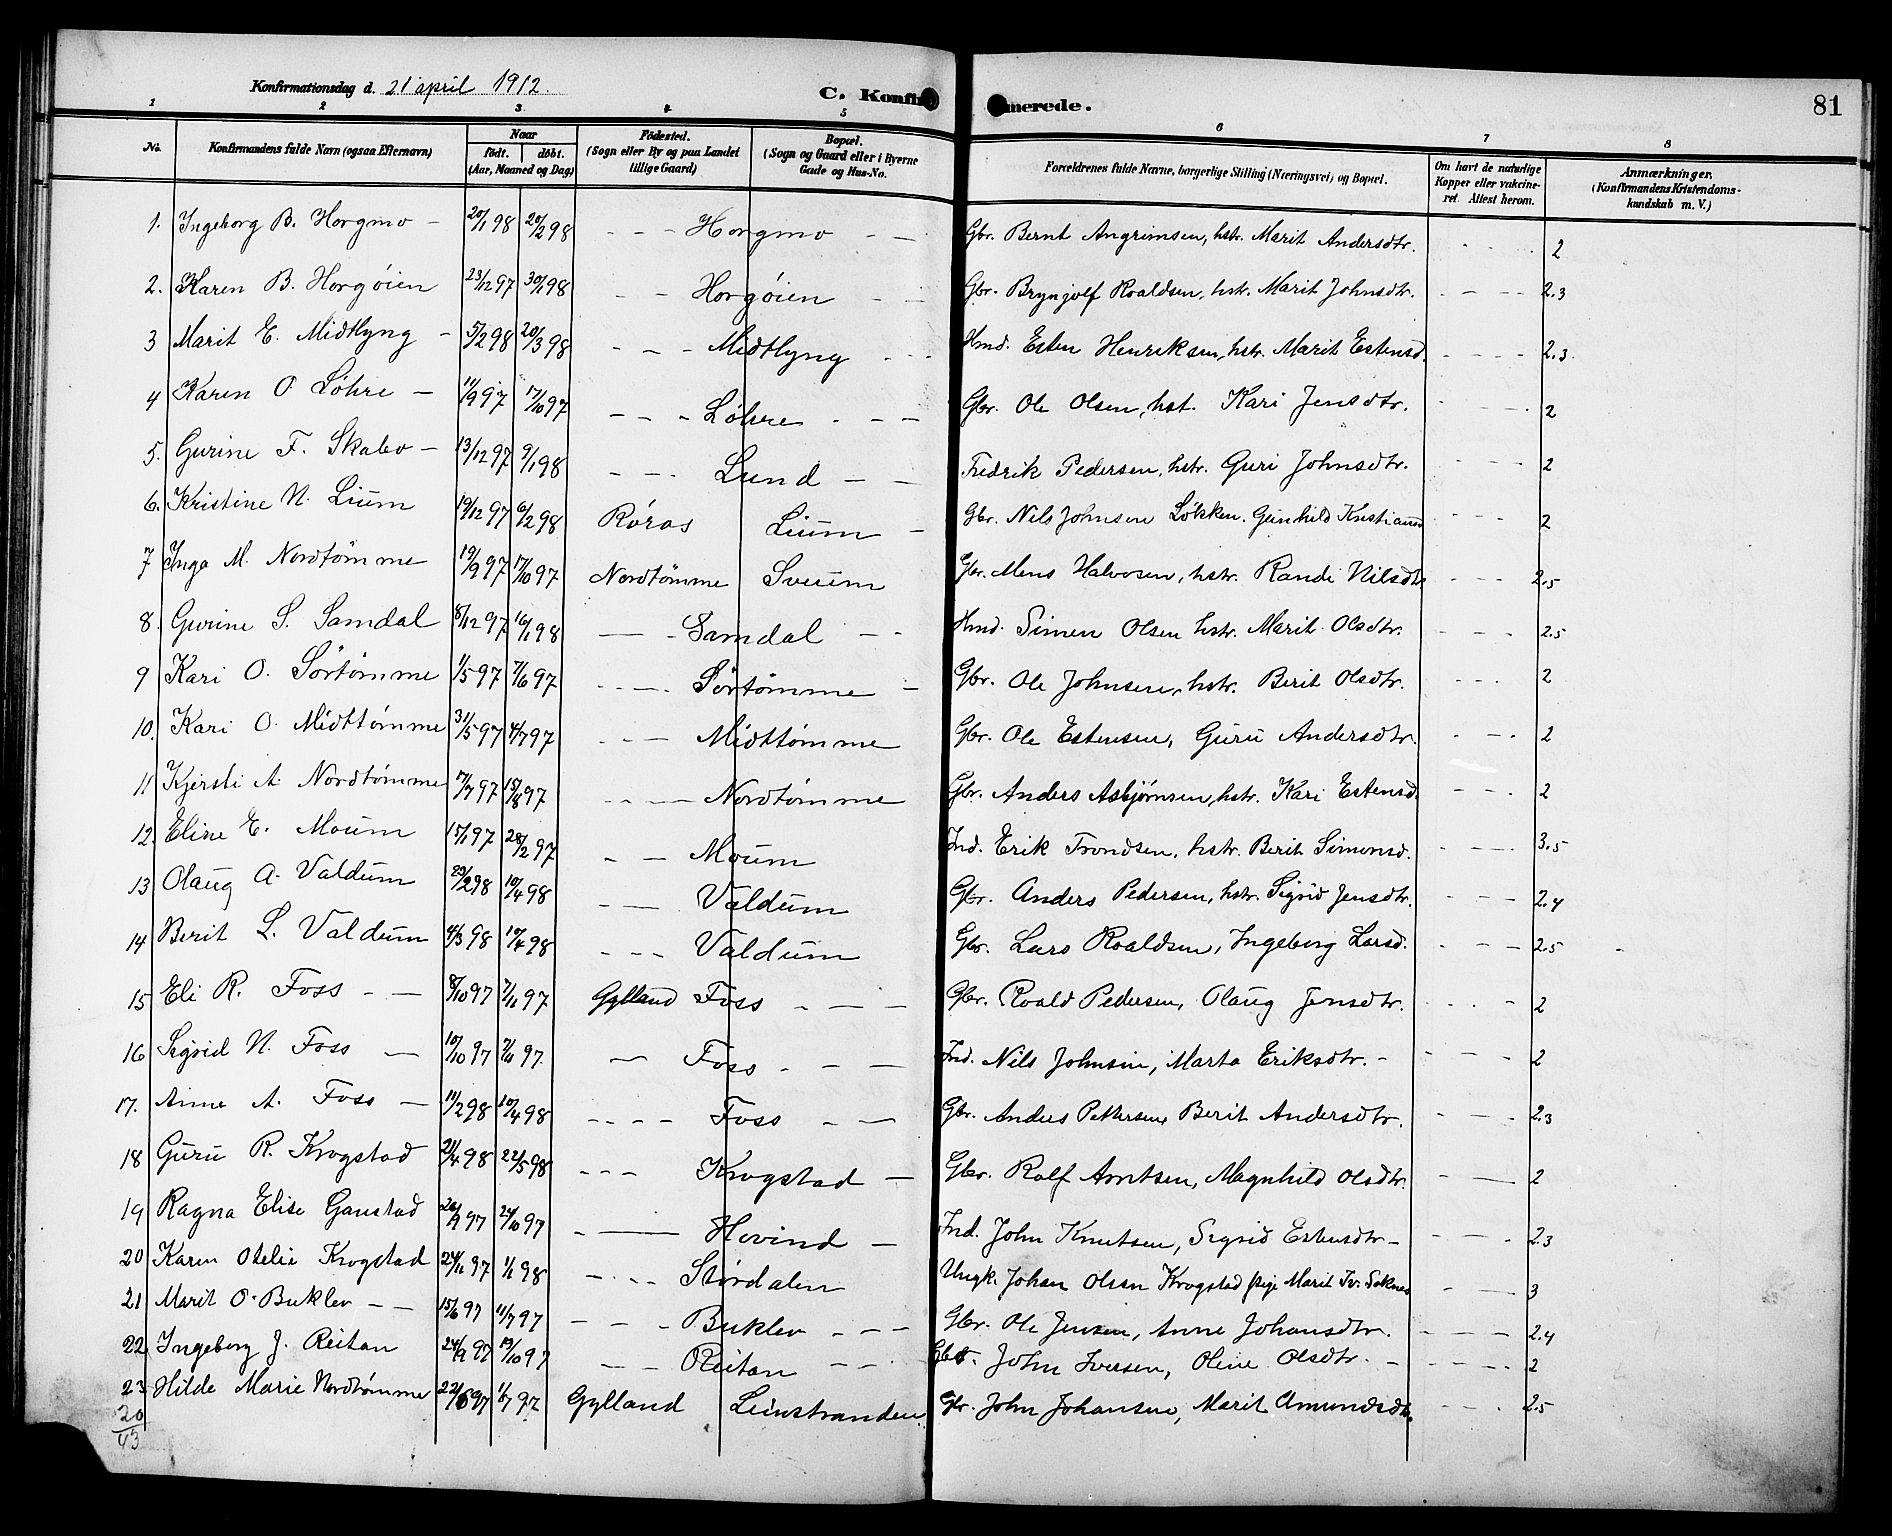 Konfirmationsdag d. 21 april 1912. C. Konfirmerede. 81
1 2 3 4 5 6 7 8
No. Konfirmandens fulde Navn (ogsaa Efternavn) Naar født. døbt. (Aar, Maaned og Dag) Fødested. (Sogn eller By og paa Landet tillige Gaard) Bopæl. (Sogn og Gaard eller i Byerne Gade og Hus-No. Forældrenes fulde Navne, borgerlige Stilling (Næringsvei) og Bopæl. Om havt de naturlige Kopper eller vakcineret. Attest herom. Anmærkninger, (Konfirmandens Kristendomskundskab m. V.)
1. Ingeborg B. Horgmo - 20/1 98 20/2 98 - - - Horgmo - - Gbr. Bernt Angrimsen, hstr. Marit Andersdtr. - - - 2
2. Karen B. Horgöien 23/12 97 30/1 98 - - Horgöien - - Gbr. Brynjolf Roaldsen, hstr. Marit Johnsdtr. - - - 2.3
3 Marit E. Midtlyng - 5/2 98 20/3 98 - - - Midtlyng - - - Hmd. Esten Henriksen, hstr. Marit Estensd. - - - - 2.3.
4 Karen O Löhre - 11/9 97 17/10 97 - - - Löhre - - - Gbr. Ole Olsen, hst. Kari Jensdtr. - - - - 2
5. Gurine F. Skalev - 13/12 97 9/1 98 - - - Lund - - Fredrik Pedersen, hstr. Guri Johnsdtr. - - - 2
6. Kristine N. Lium 19/12 97 6/2 98 Röros Lium - Gbr. Nils Johnsen Lökken. Gunhild Kristiansd - - - 2
7 Inga M. Nordtömme 19/9 97 17/10 97 Nordtömme Sveum Gbr. Mens Halvosen, hstr. Randi Nilsdtr - - - 2.5
8. Gurine S. Samdal 8/12 97 16/1 98 - - Samdal - - Hmd. Simen Olsen hstr. Marit Olsdtr. - - - 2.5
9 Kari O. Sörtömme 1/5 97 7/6 97 - - - - Sörtömme - Gbr. Ole Johnsen, hstr. Berit Olsdtr. - - - 2
10. Kari O. Midttömme 31/5 97 4/7 97 - - - Midttömme Gbr. Ole Estensen, Guru Andersdtr. - - - 2
11 Kjersti A. Nordtömme 17/7 97 15/8 97 - - - - Nordtömme Gbr. Anders Asbjørnsen, hstr. Kari Estensd. - - - 2
12. Eline E. Moum 15/1 97 28/2 97 - - Moum Ind. Erik Trondsen, hstr. Berit Simensd. - - - - 3.5
13 Olaug A. Valdum 23/2 98 10/4 98 - - - Valdum Gbr. Anders Pedersen, hstr. Sigrid Jensdtr. - - - 2.4
14 Berit L. Valdum 4/3 98 10/4 98 - - - Valdum Gbr. Lars Roaldsen, Ingeborg Larsd. - - - 2.5 -
15 Eli R. Foss - - 8/10 97 7/11 97 Gylland Foss - - - Gbr. Roald Pedersen, Olaug Jensdtr. - - - 2
16 Sigrid N. Foss - 10/10 97 7/11 97. - Foss - - - Ind. Nils Johnsen, Marta Eriksdtr. - - - - 2
17. Anne A. Foss - 11/2 98 10/4 98 - - - - Foss - - Gbr. Anders Pettersen, Berit Andersdtr. - - - 2.3
18 Guru R. Krogstad 21/4 98 22/5 98 - - - Krogstad - Gbr. Rolf Arntsen, Magnhild Olsdtr. - - 2
19 Ragna Elise Gaustad 26/9 97 24/10 97 - - Hovind - Ind. John Knutsen, Sigrid Estensdtr - - - - 2.3
20 Karen Otelie Krogstad 24/11 97 1/1 98 - - - - Stördalen Ungk. Johan Olsen Krogstad pige Marit Iv. Soknes - - 3
21 Marit O. Buklev - - 15/6 97 11/7 97 - - - Buklev - - - Gbr. Ole Jensen, Anne Johansdtr. - - - 2.4
22 Ingeborg J. Reitan 24/9 97 19/10 97 - - Reitan - - - Gbr. John Iversen, Oline Olsdtr. - - - - 2
23 Hilde Marie Nordtömme 22/6 97 1/7 97 Gylland Leinstranden Gbr. John Johansen, Marit Amundsdtr. - - - 2.5
20
43